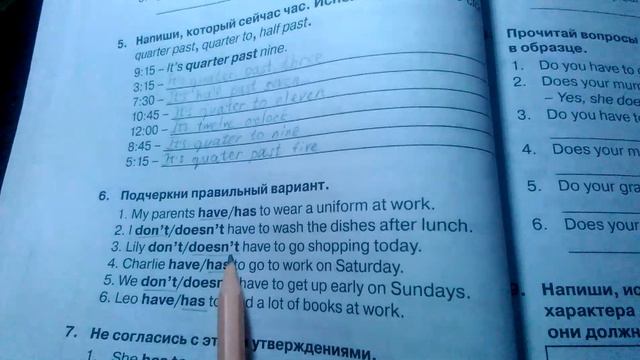 5. Напиши, который сейчас час.
quarter past, quarter to, half past.
9:15 – It's quarter past nine.
3:15 – It's quater past three
7:30 – It's half past
10:45 – It's quater to eleven
12:00 – It's twelve o'clock
8:45 – It's quater to nine
5:15 – It's quater past five
6. Подчеркни правильный вариант.
1. My parents have/has to wear a uniform at work.
2. I don't/doesn't have to wash the dishes after lunch.
3. Lily don't/doesn't have to go shopping today.
4. Charlie have/has to go to work on Saturday.
5. We don't/doesn have to get up early on Sundays.
6. Leo have/has to d a lot of books at work.
7. Не согласись с утверждениями.
1. She has to
Прочитай вопросы
в образце.
1. Do you have to
2. Does your mum
– Yes, she doe
3. Do you have t
4. Does your m
5. Do your gra
6. Does your
Напиши, ис
характера
они должн